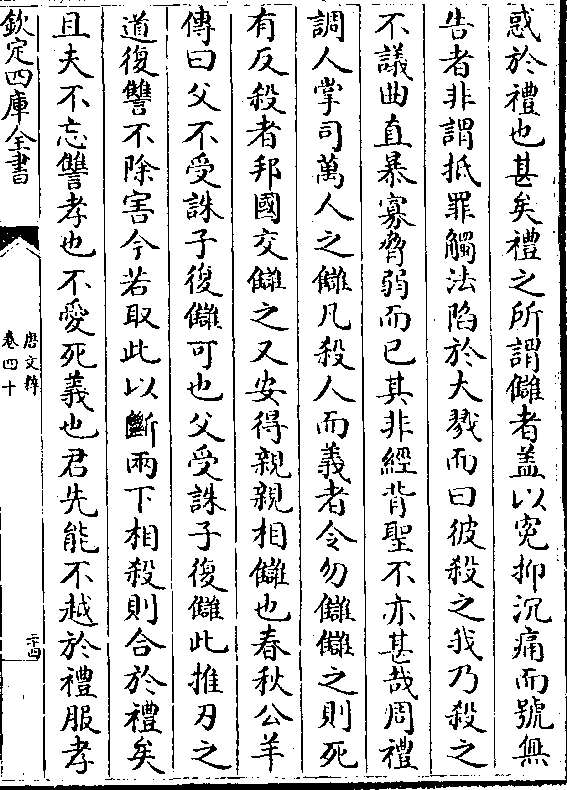 惑於禮也甚矣禮之所謂讎者盖以寃抑沉痛而號無
告者非謂抵罪觸法陷於大戮而曰彼殺之我乃殺之
不議曲直暴寡脅弱而已其非經背聖不亦甚哉周禮
調人掌司萬人之讎凡殺人而義者令勿讎讎之則死
有反殺者邦國交讎之又安得親親相讎也春秋公羊
傳曰父不受誅子復讎可也父受誅子復讎此推刃之
道復讐不除害今若取此以斷兩下相殺則合於禮矣
且夫不忘讐孝也不愛死義也君先能不越於禮服孝
欽定四庫全書
唐文粹
卷四十
二十四